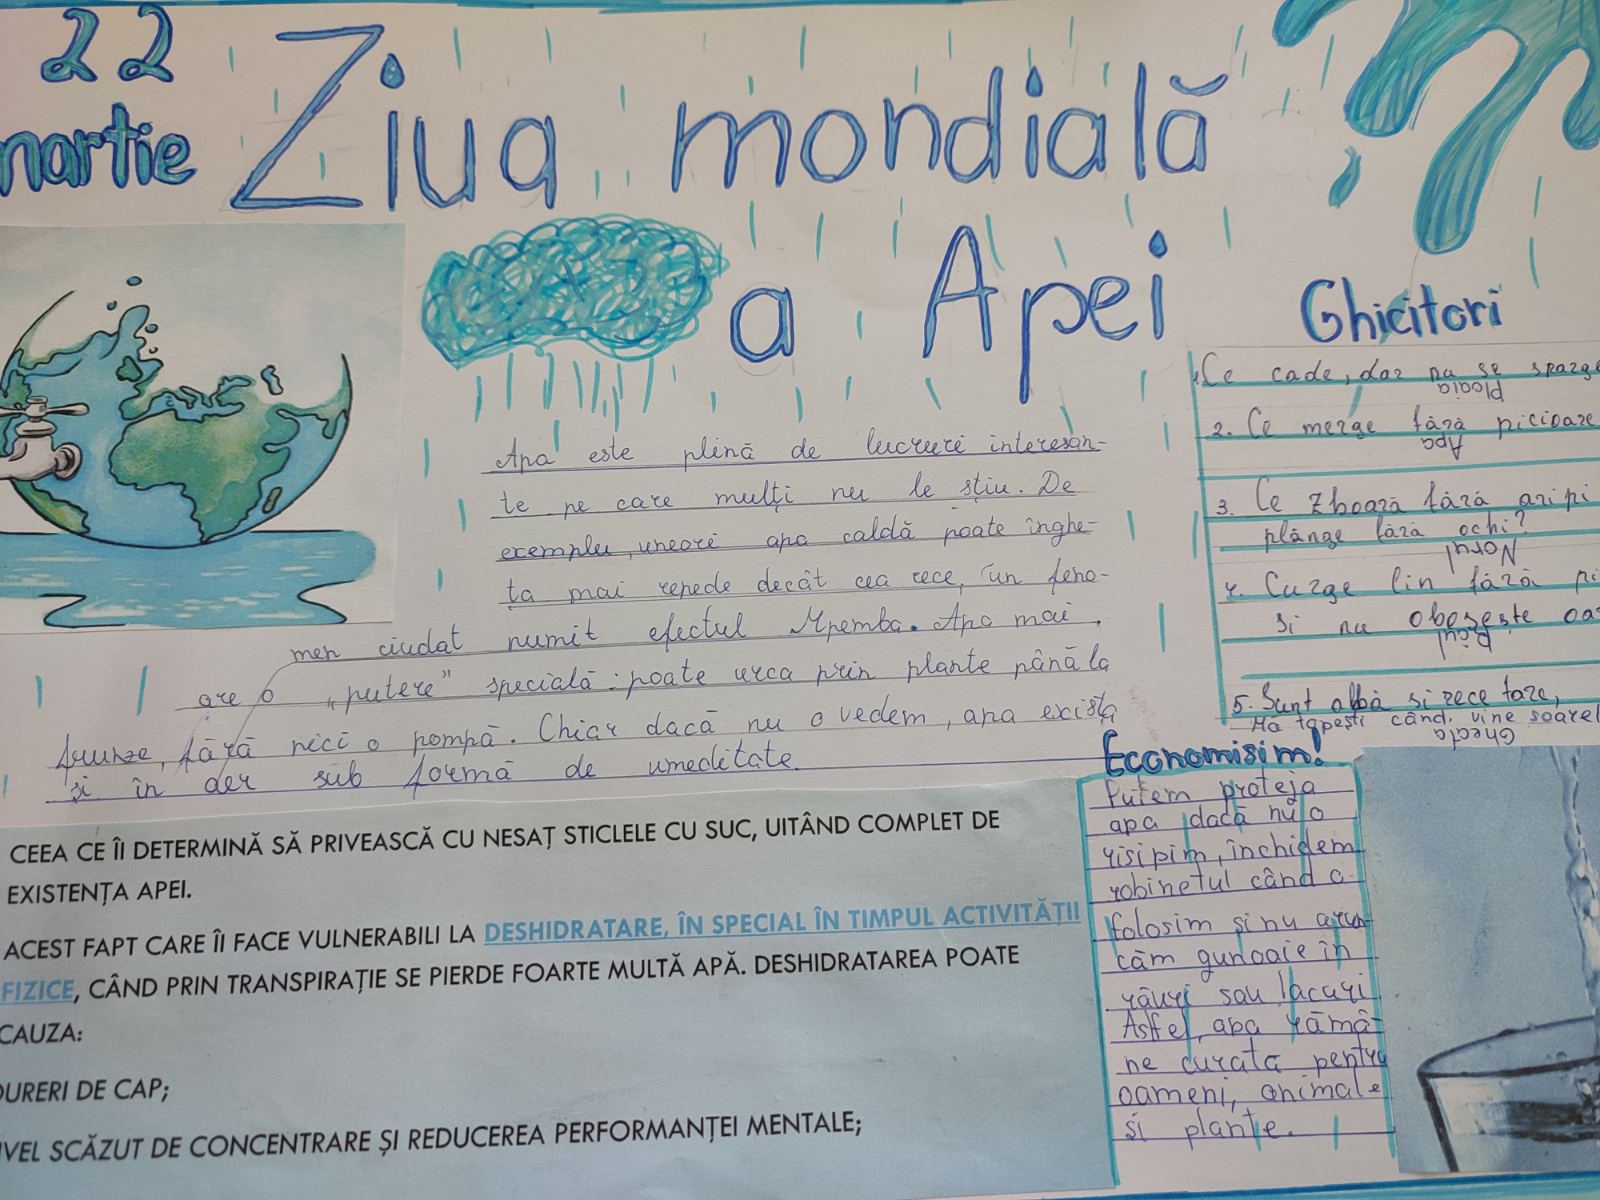 22
martie
Ziua mondială
a Apei
Apa este plină de lucruri interesan-
te pe care mulți nu le știu. De
exemplu, uneori apa caldă poate înghe-
ța mai repede decât cea rece, un feno-
men ciudat numit efectul Mpemba. Apa mai
are o „putere" specială: poate urca prin plante până la
frunze, fără nici o pompă. Chiar dacă nu o vedem, apa există
și în aer sub formă de umeditate.
Ghicitori
1. Ce cade, dar nu se sparge
Ploaia
2. Ce merge fără picioare
Apa
3. Ce zboară fără aripi
plânge fără ochi?
Norul
4. Curge lin fără
și nu obosește
Râul
5. Sunt albă și rece tare,
Mă topești când vine soarel
Gheața
Economisim!
Putem proteja
apa dacă nu o
risipim, închidem
robinetul când o
folosim și nu arun-
căm gunoaie în
râuri sau lacuri
Astfel, apa rămâ-
ne curată pentru
oameni, animale
și plante.
CEEA CE ÎI DETERMINĂ SĂ PRIVEASCĂ CU NESAȚ STICLELE CU SUC, UITÂND COMPLET DE
EXISTENȚA APEI.
ACEST FAPT CARE ÎI FACE VULNERABILI LA DESHIDRATARE, ÎN SPECIAL ÎN TIMPUL ACTIVITĂȚII
FIZICE, CÂND PRIN TRANSPIRAȚIE SE PIERDE FOARTE MULTĂ APĂ. DESHIDRATAREA POATE
CAUZA:
DURERI DE CAP;
IVEL SCĂZUT DE CONCENTRARE ȘI REDUCEREA PERFORMANȚEI MENTALE;